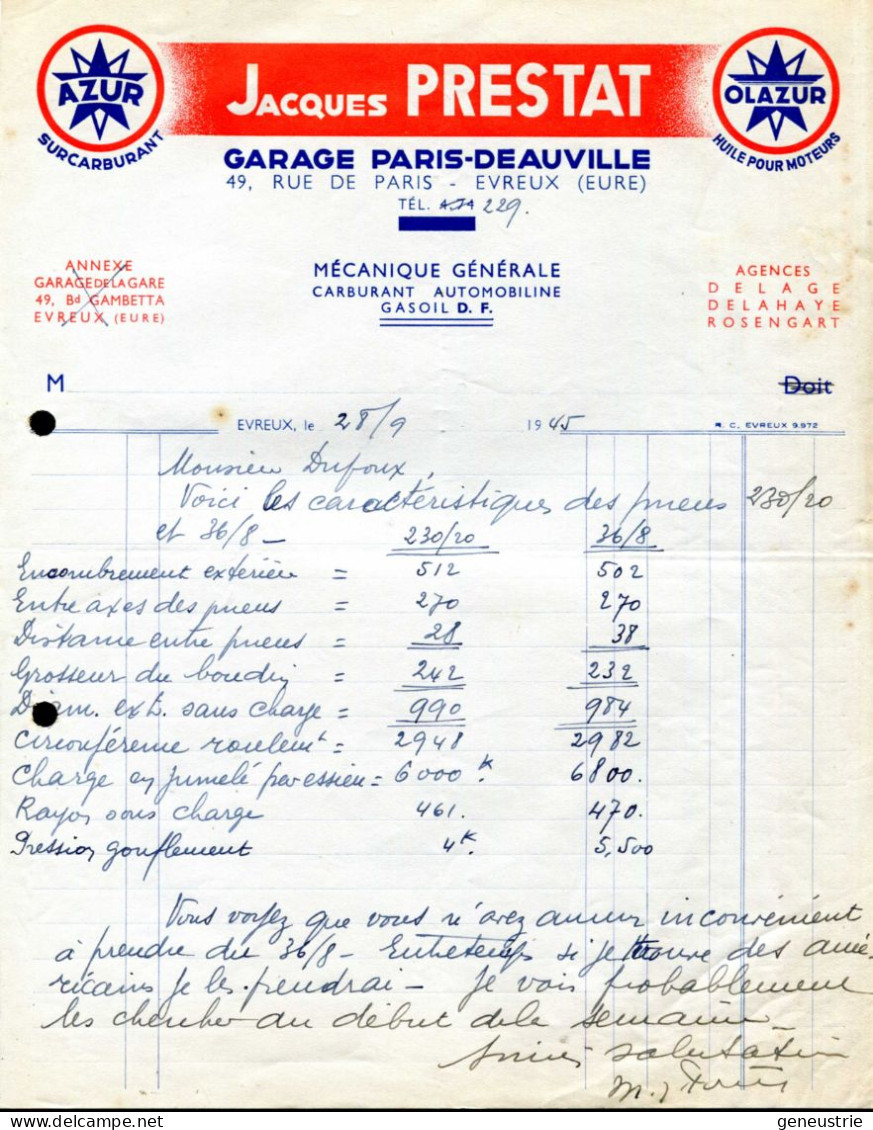 AZUR
SURCARBURANT
JACQUES PRESTAT
OLAZUR
HUILE POUR MOTEURS
GARAGE PARIS-DEAUVILLE
49, RUE DE PARIS - EVREUX (EURE)
TÉL. 229.
ANNEXE
GARAGE DE LA GARE
49, Bd GAMBETTA
EVREUX (EURE)
MÉCANIQUE GÉNÉRALE
CARBURANT AUTOMOBILINE
GASOIL D. F.
AGENCES
DELAGE
DELAHAYE
ROSENGART
M
Doit
EVREUX, le 28/9 1945
R. C. EVREUX 9.972
Monsieur Dufoux,
Voici les caractéristiques des pneus 230/20
et 36/8 - 230/20 36/8
Encombrement extérieur = 512 502
Entre axes des pneus = 270 270
Distance entre pneus = 28 38
Grosseur du boudin = 242 232
Diam. ext. sans charge = 990 984
Circonférence roulemt = 2948 2982
Charge en jumelé par essieu = 6000 K. 6800.
Rayon sous charge 461. 470.
Pression gonflement 4K. 5,500
Vous voyez que vous n'avez aucun inconvénient
à prendre du 36/8 - Entretemps si je trouve des amé-
ricains je les prendrai - Je vais probablement
les chercher au début de la semaine -
salutation
geneustrie